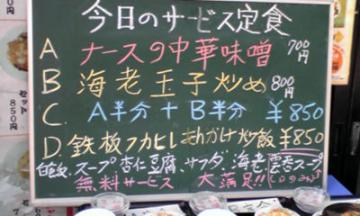 今日のサービス定食
A ナースの中華味噌 700円
B 海老玉子炒め 800円
C A半分+B半分 ¥850
D 鉄板フカヒレあんかけ炒飯 ¥850
白飯、スープ 杏仁豆腐、サラダ、海老雲呑スープ
無料サービス 大満足!!
850円